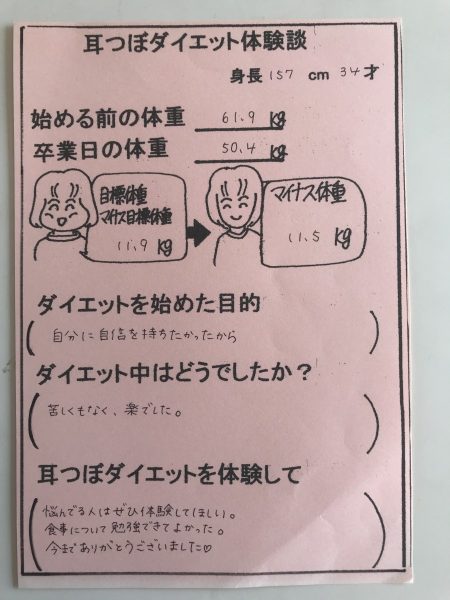 耳つぼダイエット体験談
身長 157 cm 34才
始める前の体重 61.9 kg
卒業日の体重 50.4 kg
目標体重
マイナス目標体重
11.9 kg
マイナス体重
11.5 kg
ダイエットを始めた目的
自分に自信を持ちたかったから
ダイエット中はどうでしたか？
苦しくもなく、楽でした。
耳つぼダイエットを体験して
悩んでる人はぜひ体験してほしい。
食事について勉強できてよかった。
今までありがとうございました♡